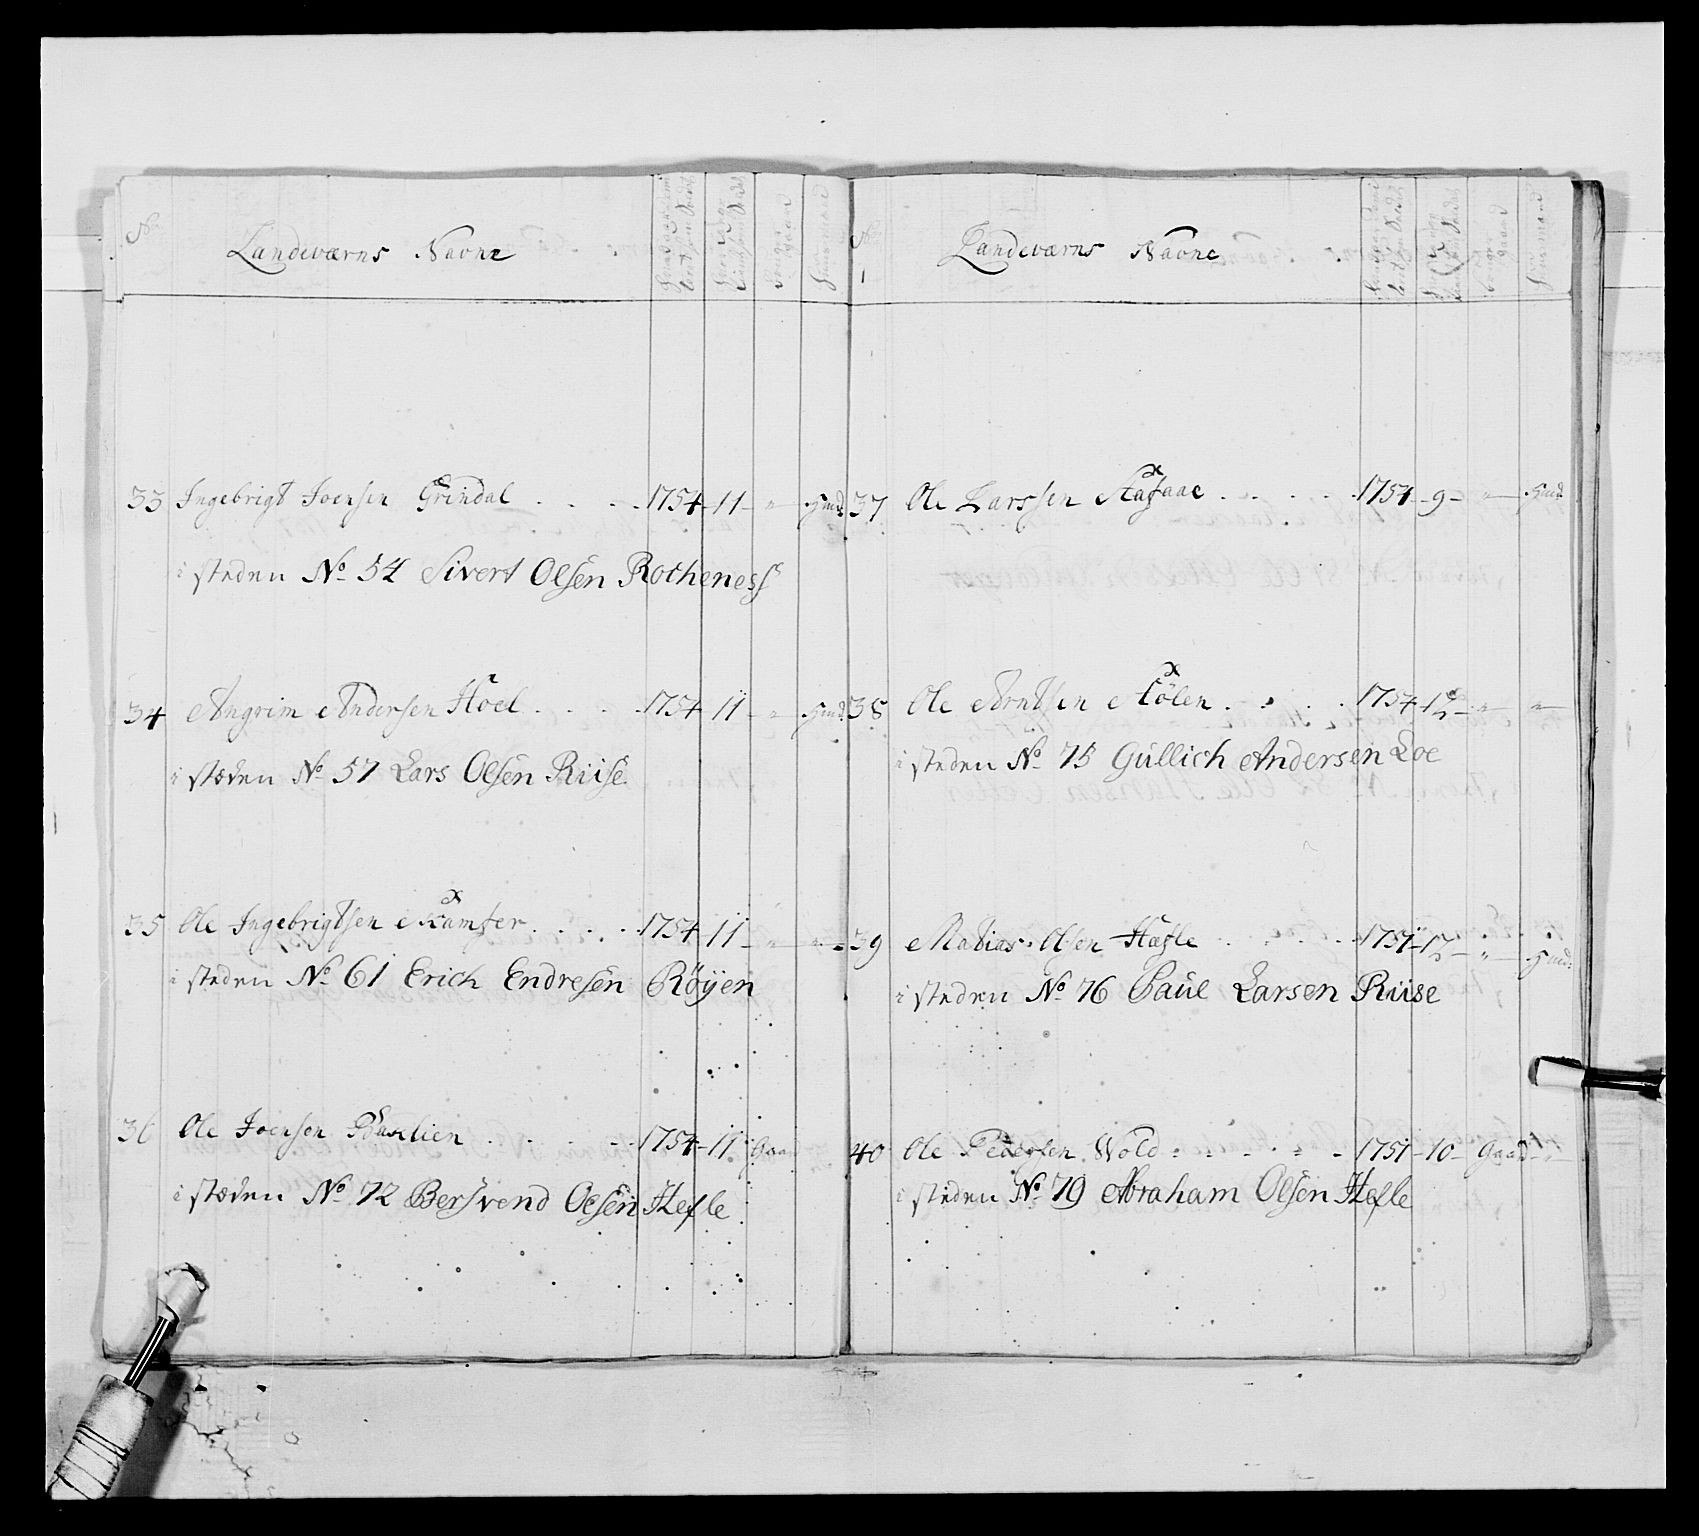 No
Landeværns Navne
33 Ingebrigt Joensen Grindal . . . . 1754 - 11 - " - Huusd
i steden No 54 Sivert Olsen Rotheness
34 Angrim Andersen Hoel . . . . 1754 - 11 - " - Huusd
i stæden No 57 Lars Olsen Riise
35 Ole Ingebrigtsen Kamfer . . . . 1754 - 11 - " - " -
i steden No 61 Erich Endresen Røÿen
36 Ole Joensen . . . . 1754 - 11 - Gaard
i stæden No 72 Bersvend Olsen Hefle
No
Landeværns Navne
37 Ole Larssen Aafaae . . . . 1754 - 9 - " - Huusd
38 Ole Arntsen Aalen . . . . 1754 - 12 - " - " -
i steden No 75 Gullich Andersen Loe
39 Matias Olsen Hæfle . . . . 1751 - 12 - " - Huusd
i steden No 76 Paul Larsen Riise
40 Ole Pedersen Wold . . . . 1751 - 10 - Gaard -
i steden No 79 Abraham Olsen Hefle